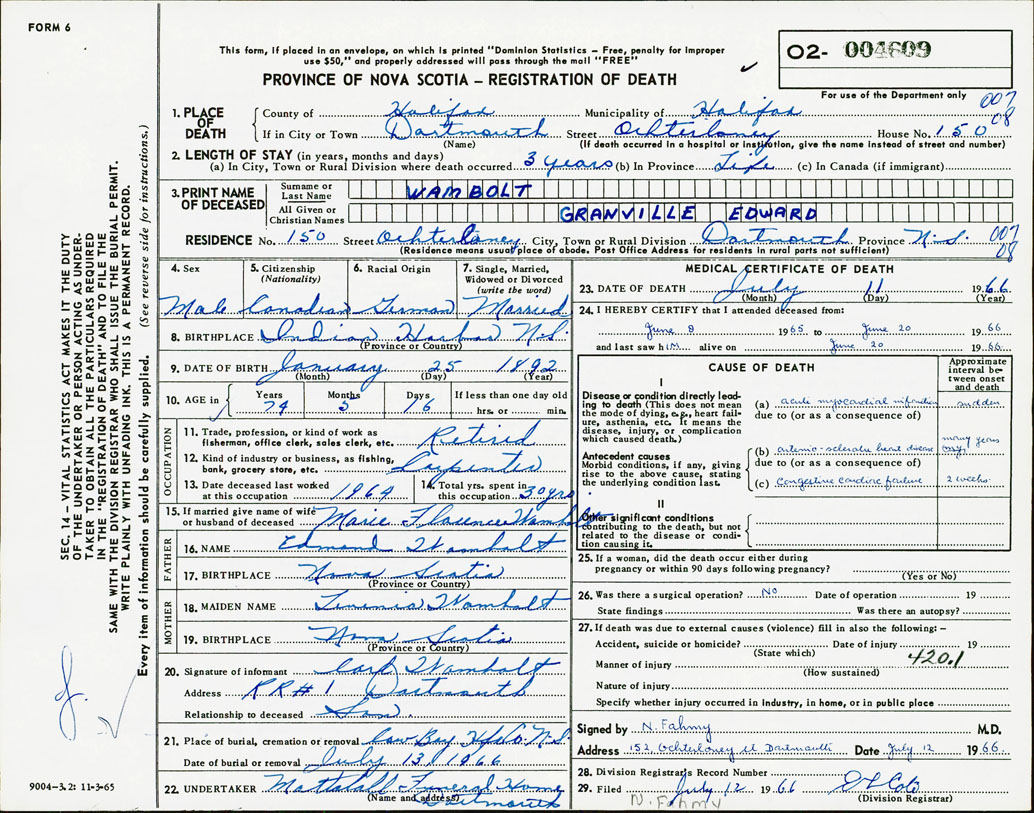 FORM 6
This form, if placed in an envelope, on which is printed "Dominion Statistics – Free, penalty for improper
use $50," and properly addressed will pass through the mail "FREE"
PROVINCE OF NOVA SCOTIA – REGISTRATION OF DEATH
O2- 004609
For use of the Department only
007
08
1. PLACE OF DEATH
County of Halifax Municipality of Halifax
If in City or Town Dartmouth Street Ochterloney House No. 150
(Name) (If death occurred in a hospital or institution, give the name instead of street and number)
2. LENGTH OF STAY (in years, months and days)
(a) In City, Town or Rural Division where death occurred 3 years (b) In Province Life (c) In Canada (if immigrant)
3. PRINT NAME OF DECEASED
Surname or Last Name WAMBOLT
All Given or Christian Names GRANVILLE EDWARD
RESIDENCE No. 150 Street Ochterloney City, Town or Rural Division Dartmouth Province N.S. 007
08
(Residence means usual place of abode. Post Office Address for residents in rural parts not sufficient)
4. Sex
Male
5. Citizenship
(Nationality)
Canadian
6. Racial Origin
German
7. Single, Married, Widowed or Divorced
(write the word)
Married
8. BIRTHPLACE Indian Harbor N.S.
(Province or Country)
9. DATE OF BIRTH January 25 1892
(Month) (Day) (Year)
10. AGE in
Years Months Days If less than one day old
74 5 16 hrs. or min.
OCCUPATION
11. Trade, profession, or kind of work as
fisherman, office clerk, sales clerk, etc. Retired
12. Kind of industry or business, as fishing,
bank, grocery store, etc. Carpenter
13. Date deceased last worked
at this occupation 1964
14. Total yrs. spent in
this occupation 30 yrs.
15. If married give name of wife
or husband of deceased Marie Florence Wambolt
FATHER
16. NAME Edmond Wambolt
17. BIRTHPLACE Nova Scotia
(Province or Country)
MOTHER
18. MAIDEN NAME Wambolt
19. BIRTHPLACE Nova Scotia
(Province or Country)
20. Signature of informant Carl Wambolt
Address RR#1 Dartmouth
Relationship to deceased Son.
21. Place of burial, cremation or removal Cow Bay Hfx Co. N.S.
Date of burial or removal July 13, 1966
22. UNDERTAKER Mattatall Funeral Home
(Name and address) Dartmouth
MEDICAL CERTIFICATE OF DEATH
23. DATE OF DEATH July 11 1966
(Month) (Day) (Year)
24. I HEREBY CERTIFY that I attended deceased from:
June 8 1965 to June 20 1966
and last saw him alive on June 20 1966
CAUSE OF DEATH
Approximate interval between onset and death
I
Disease or condition directly leading to death (This does not mean the mode of dying, e.g., heart failure, asthenia, etc. It means the disease, injury, or complication which caused death.)
(a) acute myocardial infarction sudden
due to (or as a consequence of)
Antecedent causes
Morbid conditions, if any, giving rise to the above cause, stating the underlying condition last.
(b) arterio-sclerotic heart disease many years
due to (or as a consequence of)
(c) Congestive cardiac failure 2 weeks
II
Other significant conditions
contributing to the death, but not related to the disease or condition causing it.
25. If a woman, did the death occur either during
pregnancy or within 90 days following pregnancy?
(Yes or No)
26. Was there a surgical operation? No Date of operation 19
State findings Was there an autopsy?
27. If death was due to external causes (violence) fill in also the following: –
Accident, suicide or homicide? Date of injury 19
(State which)
420.1
Manner of injury
(How sustained)
Nature of injury
Specify whether injury occurred in Industry, in home, or in public place
Signed by N. Fahmy M.D.
Address 152 Ochterloney st Dartmouth Date July 12 1966
28. Division Registrar's Record Number
29. Filed July 12 1966
(Division Registrar)
N. Fahmy
SEC. 14 – VITAL STATISTICS ACT MAKES IT THE DUTY
OF THE UNDERTAKER OR PERSON ACTING AS UNDER-
TAKER TO OBTAIN ALL THE PARTICULARS REQUIRED
IN THE "REGISTRATION OF DEATH" AND TO FILE THE
SAME WITH THE DIVISION REGISTRAR WHO SHALL ISSUE THE BURIAL PERMIT.
WRITE PLAINLY WITH UNFADING INK. THIS IS A PERMANENT RECORD.
Every item of information should be carefully supplied. (See reverse side for instructions.)
9004-3.2: 11-3-65